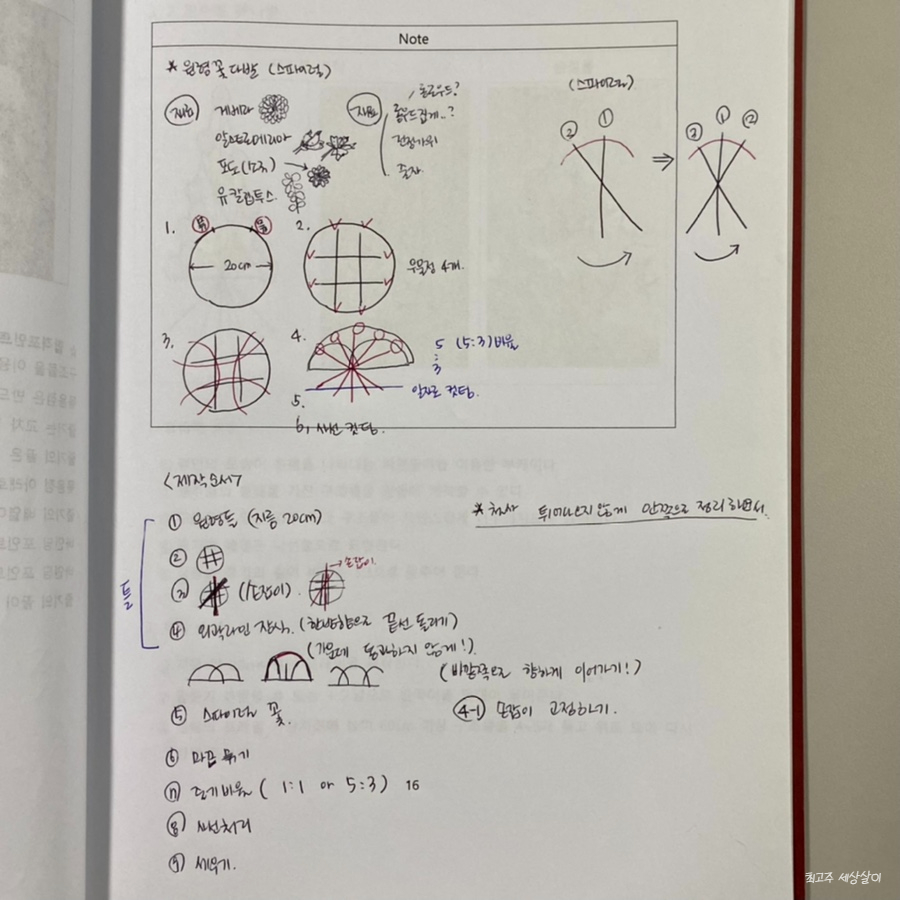 Note
* 원형 꽃다발 (스파이럴)
재료 거베라
알스트로메리아
포도(모카)
유칼립투스.
재료
플로우드?
롤우드집게..?
전정가위
줄자
(스파이럴)
② ①
② ① ②
1.
20cm
2.
우물정 4개.
3.
4.
5 (5:3)비율
:
3
일자로 컷팅.
5.
6, 사선 컷팅.
<제작순서>
틀
① 원형틀 (지름 20cm)
* 철사 튀어나오지 않게 안쪽으로 정리하면서.
②
③ (손잡이).
손잡이
④ 외곽라인 장식. (한방향으로 끝선 돌리기)
(가운데 통과하지 않게!).
(바깥쪽으로 향하게 이어가기!)
⑤ 스파이럴 꽃.
④-1 손잡이 고정하기.
⑥ 마끈 묶기
⑦ 줄기비율 ( 1:1 or 5:3)
16
⑧ 사선처리
⑨ 세우기.
최고주 세상살이